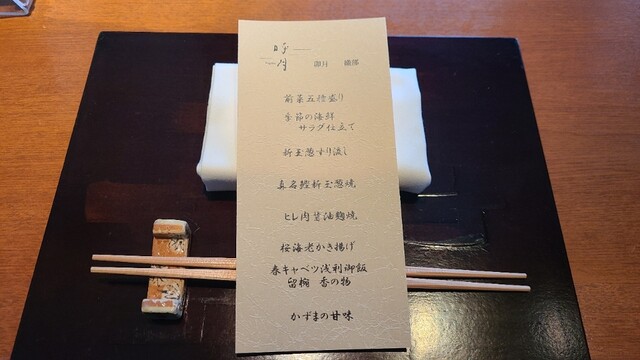 前菜五拾盛り
季節の海鮮
サラダ仕立て
新玉葱すり流し
真名鰹新玉葱焼
ヒレ肉醤油麹焼
桜海老かき揚げ
春キャベツ浅利御飯
留椀 香の物
かずまの甘味